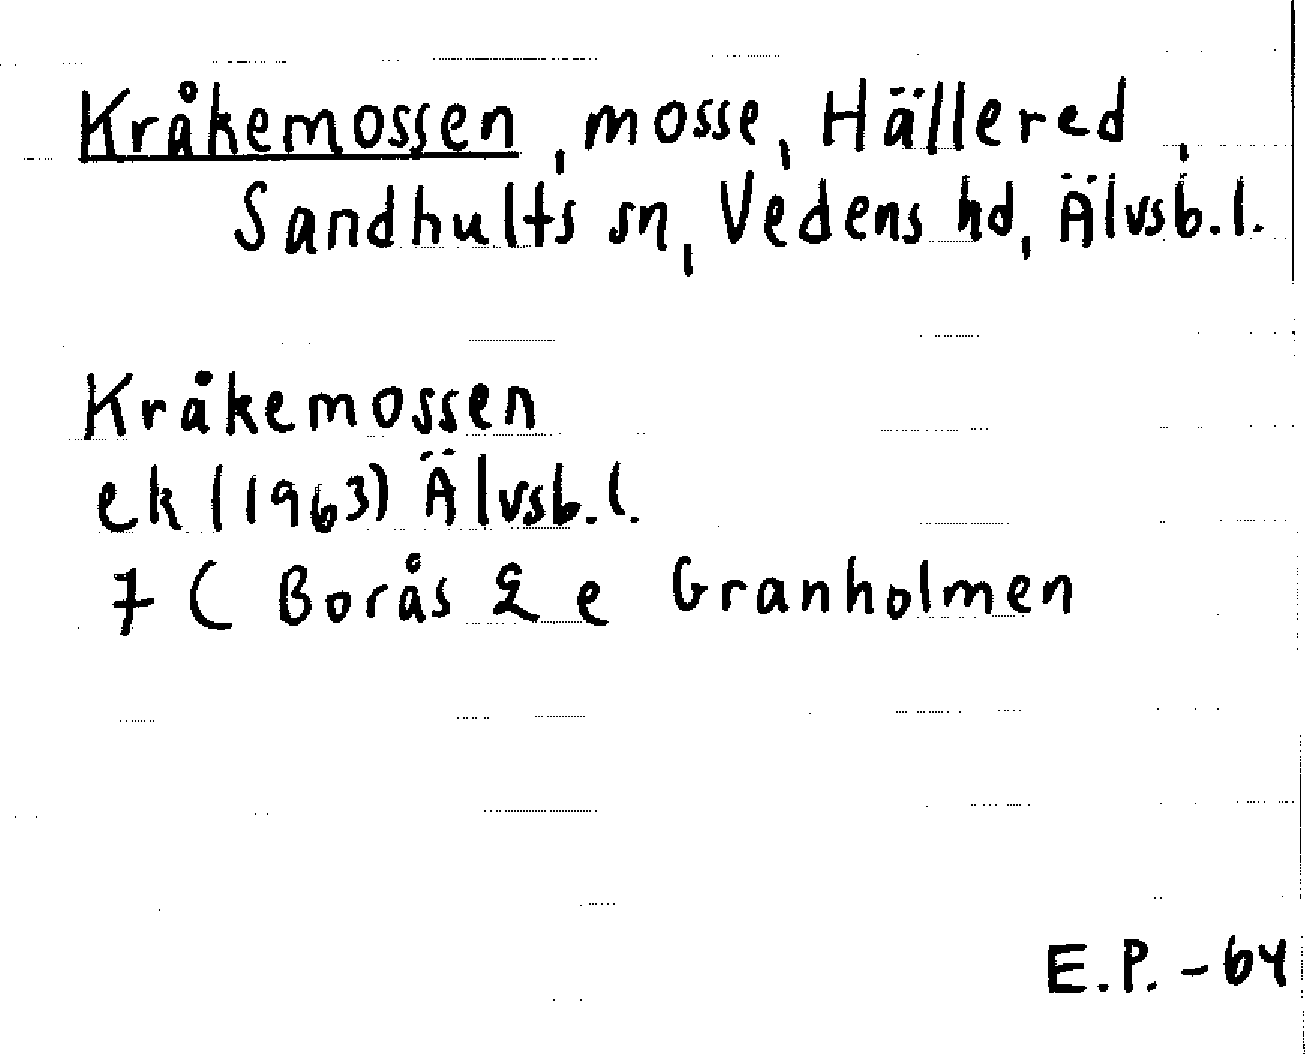 Kråkemossen, mosse, Hällered,
Sandhults sn, Vedens hd, Älvsb.l.
Kråkemossen
ek (1963) Älvsb.l.
7 ( Borås Q e Granholmen
E.P. -64